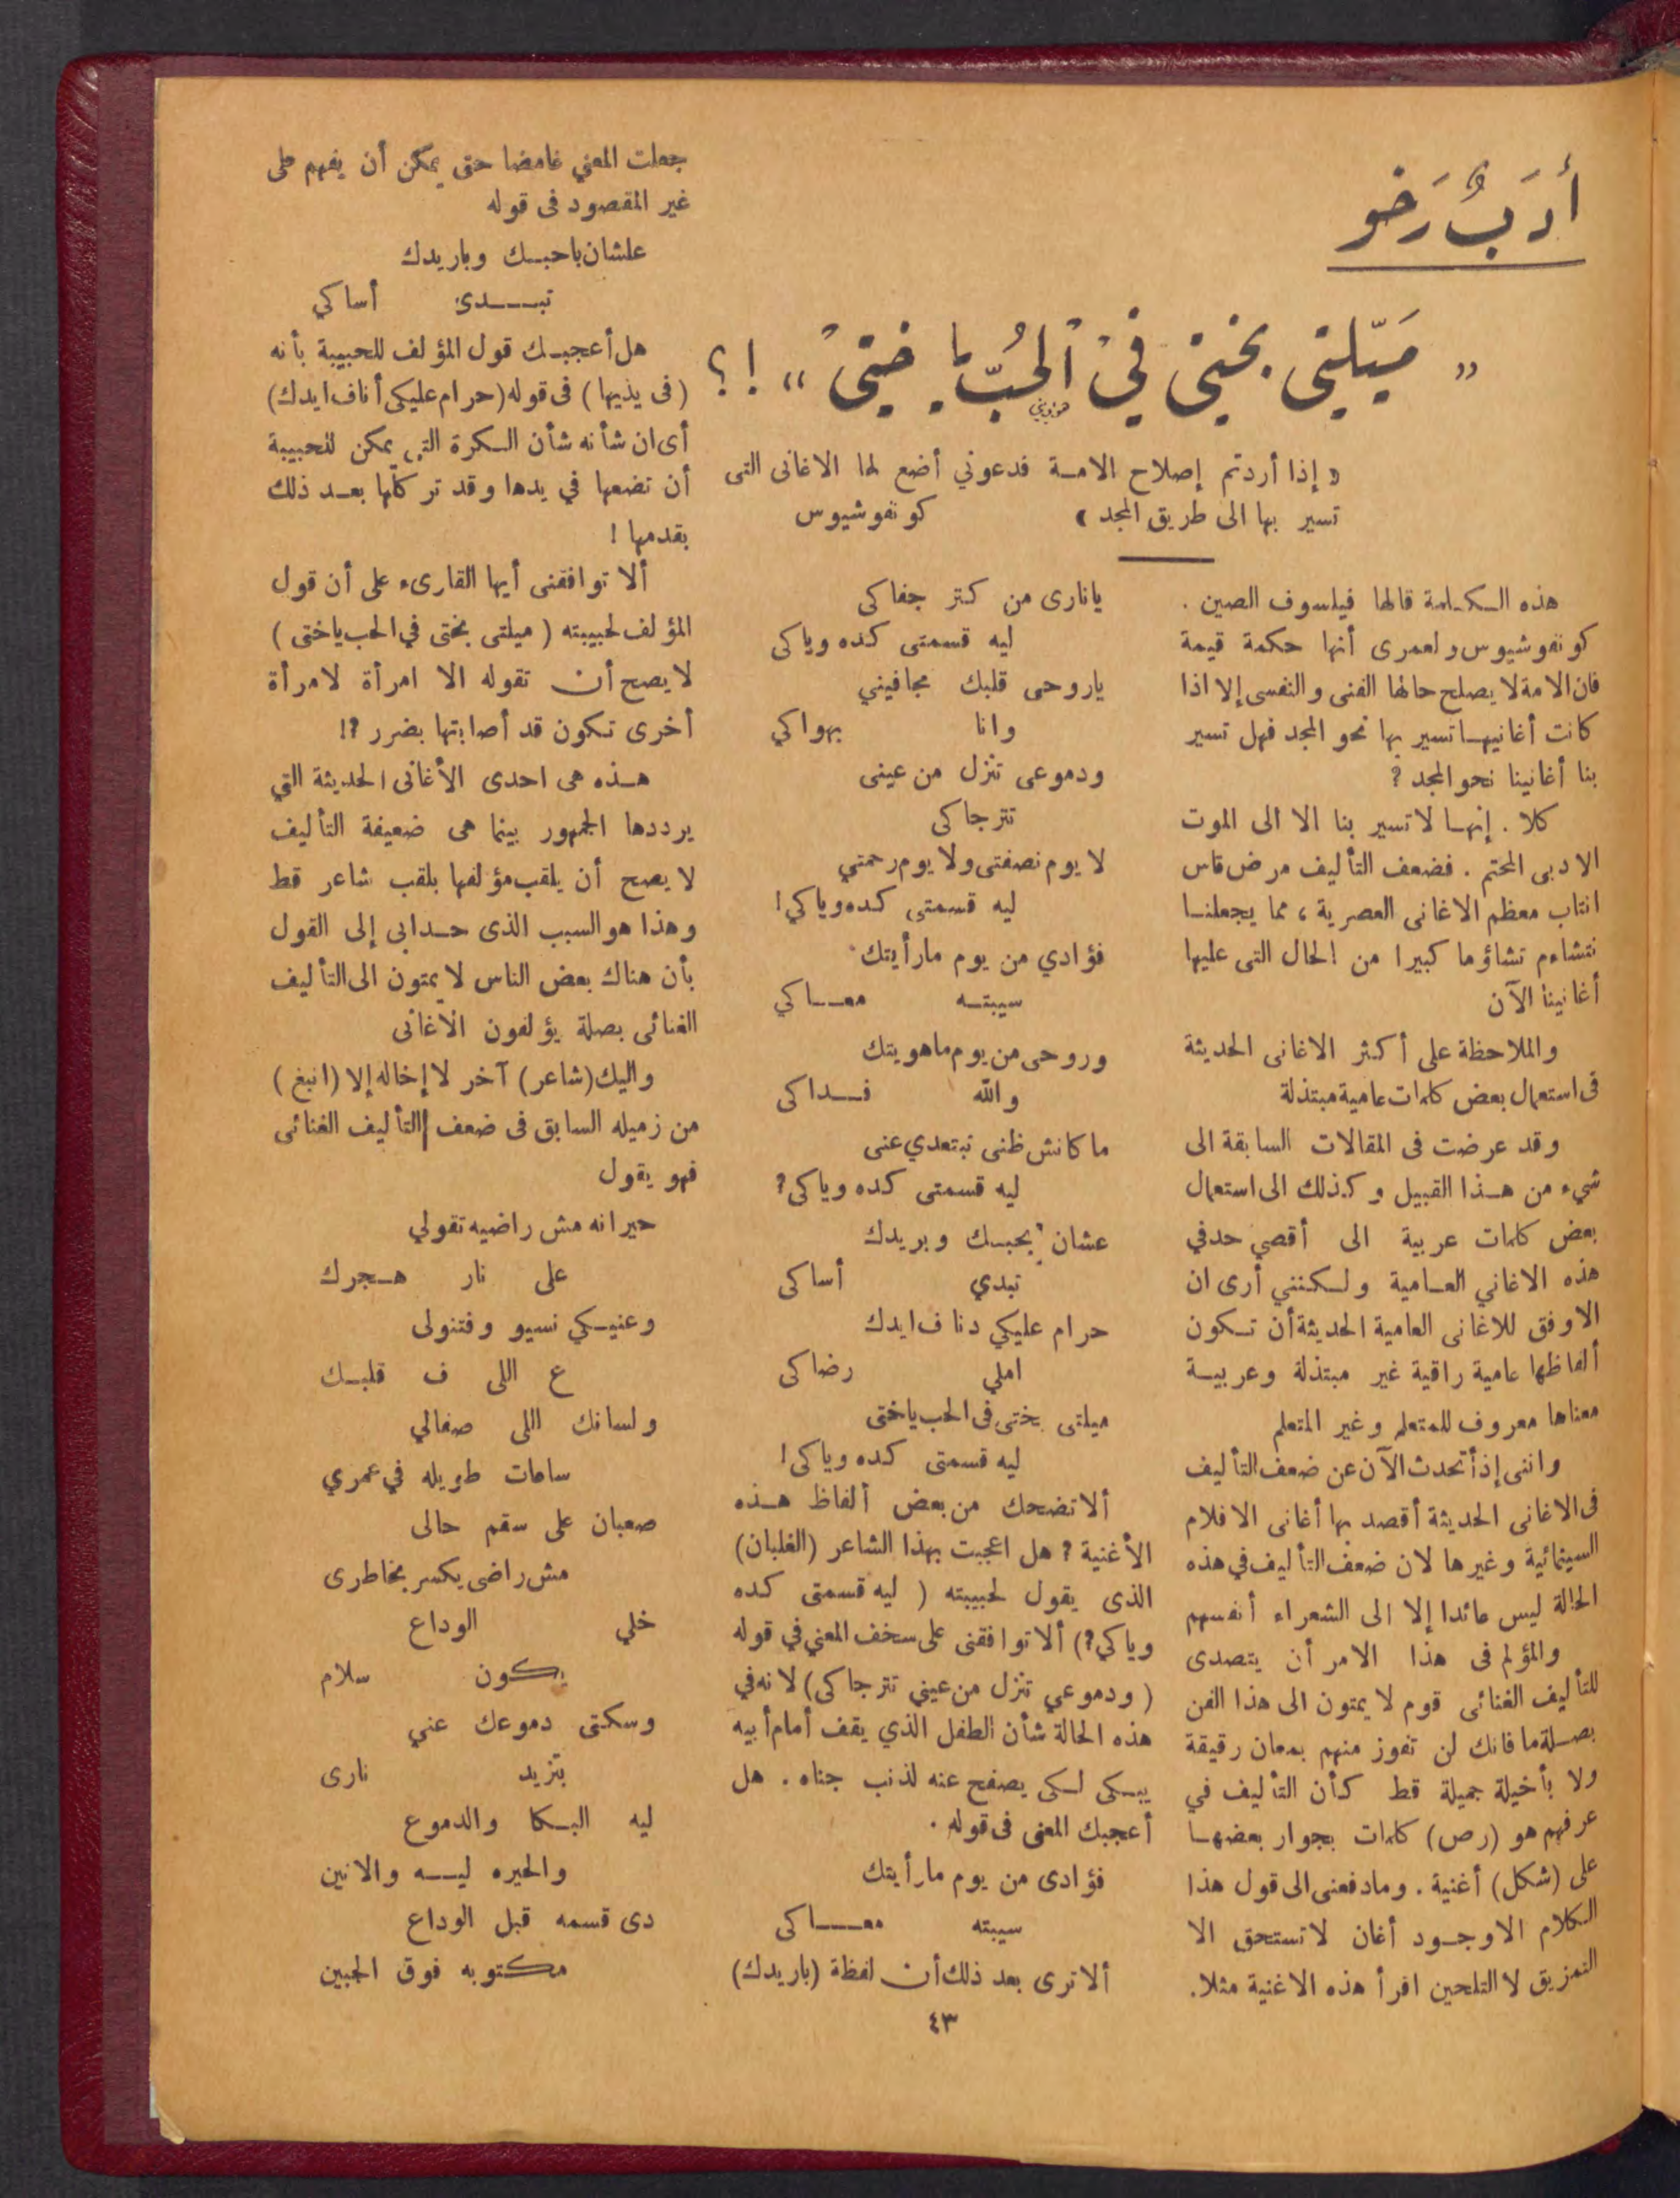 أَدَبٌ رَخو
« مَيّلتي بختي فيْ الحُبّ يا ختيْ » !؟
« إذا أردتم إصلاح الامــة فدعوني أضع لها الاغانى التى
تسير بها الى طريق المجد » كونفوشيوس
هذه الكلمة قالها فيلسوف الصين .
كونفوشيوس ولعمرى أنها حكمة قيمة
فان الامة لا يصلح حالها الفنى والنفسى إلا اذا
كانت أغانيها تسير بها نحو المجد فهل تسير
بنا أغانينا نحو المجد ؟
كلا . إنها لا تسير بنا الا الى الموت
الادبى المحتم . فضعف التأليف مرض قاس
انتاب معظم الاغانى العصرية ، مما يجعلنا
نتشاءم تشاؤما كبيرا من الحال التى عليها
أغانينا الآن
والملاحظة على أكثر الاغانى الحديثة
فى استعمال بعض كلمات عامية مبتذلة
وقد عرضت فى المقالات السابقة الى
شيء من هذا القبيل وكذلك الى استعمال
بعض كلمات عربية الى أقصي حد في
هذه الاغاني العامية ولكنني أرى ان
الاوفق للاغانى العامية الحديثة أن تكون
ألفاظها عامية راقية غير مبتذلة وعربية
معناها معروف للمتعلم وغير المتعلم
واننى إذ أتحدث الآن عن ضعف التأليف
فى الاغانى الحديثة أقصد بها أغانى الافلام
السينمائية وغيرها لان ضعف التأليف في هذه
الحالة ليس عائدا إلا الى الشعراء أنفسهم
والمؤلم فى هذا الامر أن يتصدى
للتأليف الغنائى قوم لا يمتون الى هذا الفن
بصلة ما فانك لن تفوز منهم بمعان رقيقة
ولا بأخيلة جميلة قط كأن التأليف في
عرفهم هو (رص) كلمات بجوار بعضها
على (شكل) أغنية . وما دفعنى الى قول هذا
الكلام الا وجود أغان لا تستحق الا
التمزيق لا التلحين اقرأ هذه الاغنية مثلا.
يانارى من كتر جفاكى
ليه قسمتى كده وياكى
ياروحى قلبك مجافيني
وانا بهواكي
ودموعى تنزل من عينى
تترجاكى
لا يوم نصفتى ولا يوم رحمتي
ليه قسمتى كده وياكي!
فؤادي من يوم مارأيتك
سيبته معاكي
وروحى من يوم ماهويتك
والله فداكى
ما كانش ظنى تبتعدي عنى
ليه قسمتى كده وياكى؟
عشان بحبك وبريدك
تبدي أساكى
حرام عليكي دنا ف ايدك
املي رضاكى
ميلتى بختى فى الحب ياختى
ليه قسمتى كده وياكى!
ألا تضحك من بعض ألفاظ هذه
الأغنية ؟ هل اعجبت بهذا الشاعر (الغلبان)
الذى يقول لحبيبته ( ليه قسمتى كده
وياكي؟) ألا توافقنى على سخف المعني في قوله
( ودموعي تنزل من عيني تترجاكى) لانه في
هذه الحالة شأن الطفل الذي يقف أمام أبيه
يبكى لكى يصفح عنه لذنب جناه . هل
أعجبك المعنى فى قوله .
فؤادى من يوم مارأيتك
سيبته معاكى
ألا ترى بعد ذلك أن لفظة (باريدك)
جعلت المعني غامضا حتى يمكن أن يفهم على
غير المقصود فى قوله
علشان باحبك وباريدك
تبدى أساكي
هل أعجبك قول المؤلف للحبيبة بأنه
(فى يذيها) فى قوله (حرام عليكى أنا ف ايدك)
أى ان شأنه شأن الكرة التي يمكن للحبيبة
أن تضعها في يدها وقد تركلها بعد ذلك
بقدمها !
ألا توافقنى أيها القارىء على أن قول
المؤلف لحبيبته ( ميلتى بختى في الحب ياختى )
لا يصح أن تقوله الا امرأة لامرأة
أخرى تكون قد أصابتها بضرر ؟!
هذه هى احدى الأغانى الحديثة التي
يرددها الجمهور بينما هى ضعيفة التأليف
لا يصح أن يلقب مؤلفها بلقب شاعر قط
وهذا هو السبب الذى حدابى إلى القول
بأن هناك بعض الناس لا يمتون الى التأليف
الغنائى بصلة يؤلفون الاغانى
واليك (شاعر) آخر لا إخاله إلا (انبغ)
من زميله السابق فى ضعف التأليف الغنائى
فهو يقول
حيرانه مش راضيه تقولي
على نار هجرك
وعنيكي نسيو وفتنولى
ع اللى ف قلبك
ولسانك اللى صفالي
ساعات طويله في عمري
صعبان على سقم حالى
مش راضى يكسر بخاطرى
خلي الوداع
يكون سلام
وسكتى دموعك عني
بتزيد نارى
ليه البكا والدموع
والحيره ليه والانين
دى قسمه قبل الوداع
مكتوبه فوق الجبين
٤٣